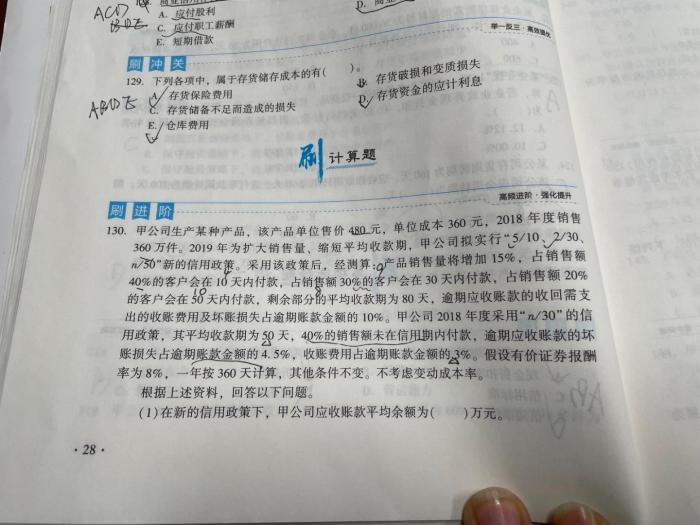 ACD
A. 应付股利
C. 应付职工薪酬
E. 短期借款
举一反三·高效速练
刷 冲 关
129. 下列各项中，属于存货储存成本的有(　　)。
ABDE
A. 存货保险费用
B. 存货破损和变质损失
C. 存货储备不足而造成的损失
D. 存货资金的应计利息
E. 仓库费用
刷 计算题
高频进阶·强化提升
刷 进 阶
130. 甲公司生产某种产品，该产品单位售价 480 元，单位成本 360 元，2018 年度销售
360 万件。2019 年为扩大销售量、缩短平均收款期，甲公司拟实行“5/10、2/30、
n/50”新的信用政策。采用该政策后，经测算：产品销售量将增加 15%，占销售额
40%的客户会在 10 天内付款，占销售额 30%的客户会在 30 天内付款，占销售额 20%
的客户会在 50 天内付款，剩余部分的平均收款期为 80 天，逾期应收账款的收回需支
出的收账费用及坏账损失占逾期账款金额的 10%。甲公司 2018 年度采用“n/30”的信
用政策，其平均收款期为 50 天，40%的销售额未在信用期内付款，逾期应收账款的坏
账损失占逾期账款金额的 4.5%，收账费用占逾期账款金额的 3%。假设有价证券报酬
率为 8%，一年按 360 天计算，其他条件不变。不考虑变动成本率。
根据上述资料，回答以下问题。
(1)在新的信用政策下，甲公司应收账款平均余额为(　　)万元。
·28·